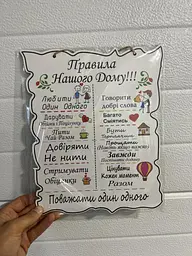 Правила
Нашого Дому!!!
Любити
Один Одного
Дарувати
Тепло і Підтримку
Пити
Чай Разом
Довіряти
Не нити
Стримувати
Обіцянки
Говорити
добрі слова
Багато
Сміятись
Бути
Терплячими
Прощати
Завжди
Цінувати
Кожен момент
Разом
Поважати один одного